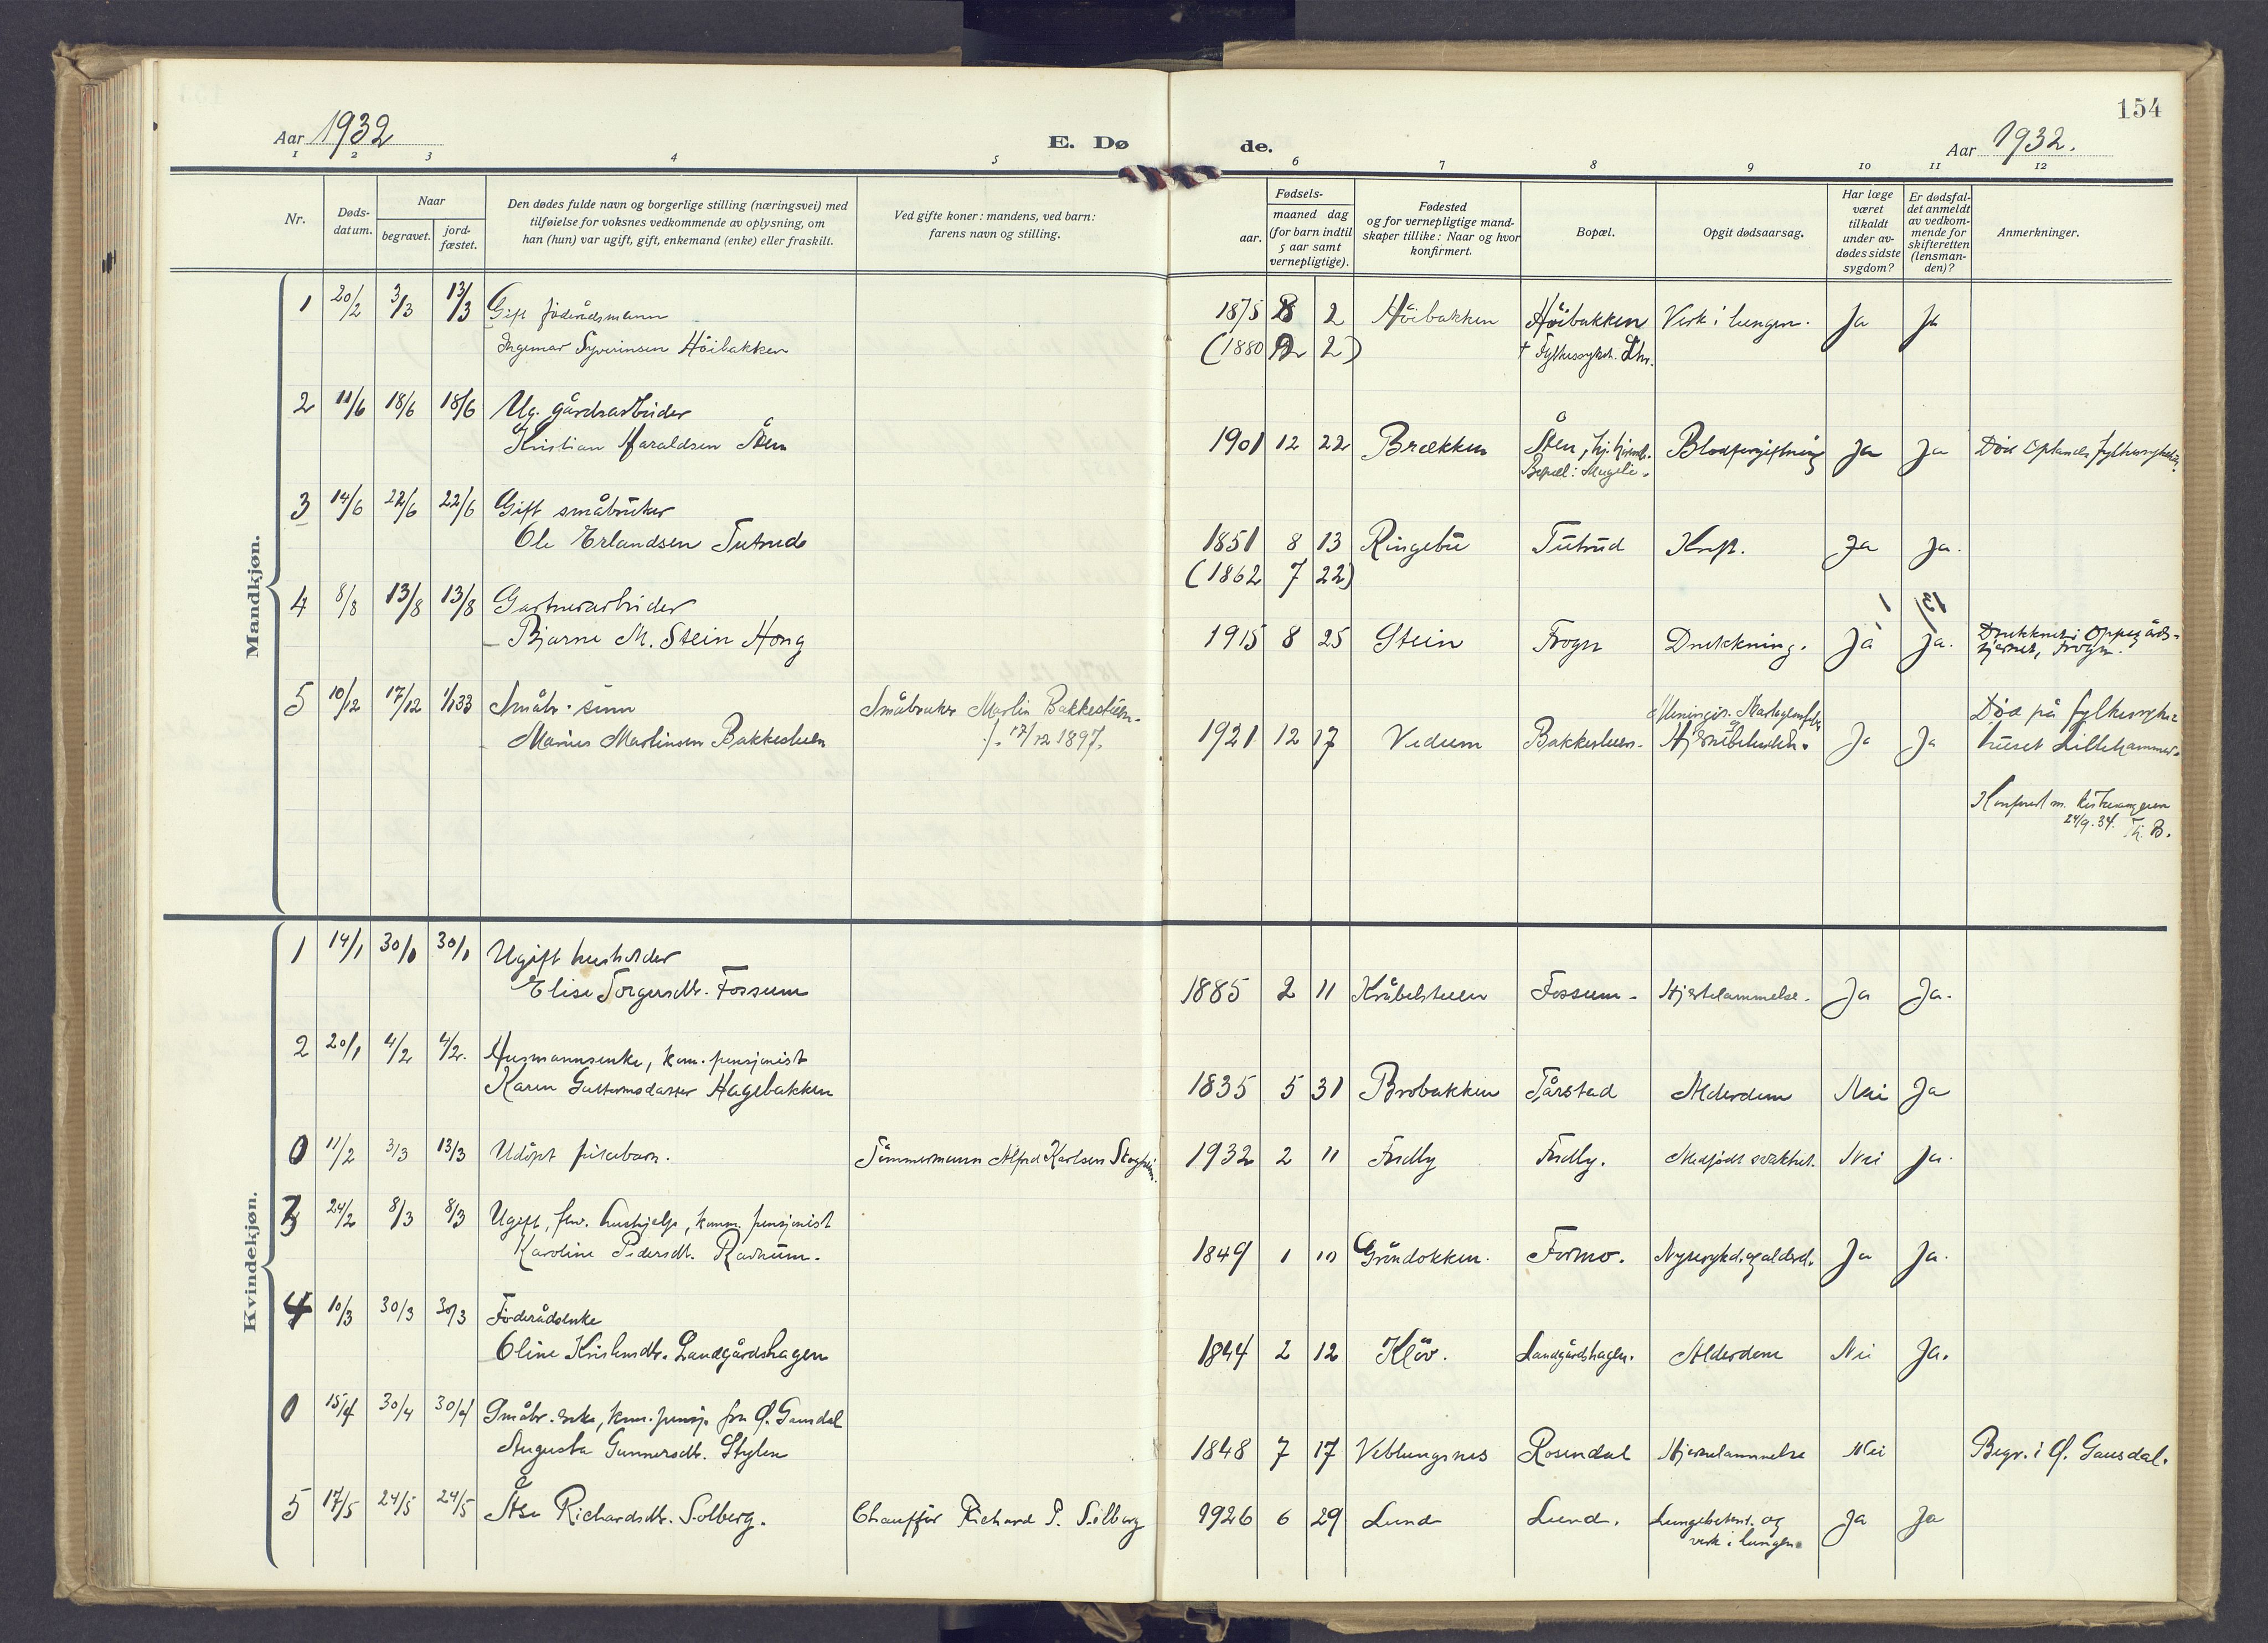 154
Aar 1932
E. Dø
de.
Aar 1932.
1 2 3 4 5 6 7 8 9 10 11 12
Nr.
Døds-
datum.
Naar
begravet.
jord-
fæstet.
Den dødes fulde navn og borgerlige stilling (næringsvei) med
tilføielse for voksnes vedkommende av oplysning, om
han (hun) var ugift, gift, enkemand (enke) eller fraskilt.
Ved gifte koner: mandens, ved barn:
farens navn og stilling.
Fødsels-
aar.
maaned dag
(for barn indtil
5 aar samt
vernepligtige).
Fødested
og for vernepligtige mand-
skaper tillike: Naar og hvor
konfirmert.
Bopæl.
Opgit dødsaarsag.
Har læge
været
tilkaldt
under av-
dødes sidste
sygdom?
Er dødsfal-
det anmeldt
av vedkom-
mende for
skifteretten
(lensman-
den)?
Anmerkninger.
Mandkjøn.
1 20/2 3/3 13/3 Gift føderådsmann
Ingemar Syverinsen Höibakken
1875 2 Höibakken Höibakken Verk i lungen. Ja Ja
(1880 2) † Fylkessykeh. Lhr.
2 11/6 18/6 18/6 Ug. gårdsarbeider
Kristian Haraldsen Åen
1901 12 22 Brækken Åen, Blodforgiftning Ja Ja Död Oplands fylkessykehus
Bopæl:
3 14/6 22/6 22/6 Gift småbruker
Ole Erlandsen Tutrud
1851 8 13 Ringebu Tutrud Kreft. Ja Ja.
(1862 7 22)
4 8/8 13/8 13/8 Gartnerarbeider
Bjarne M. Stein Hong
1915 8 25 Stein Frogn Drukkning. Ja Ja. Druknet i Oppegårds-
tjernet, Frogn.
5 10/12 17/12 1/1 33 Småbr. sønn
Marius Martinsen Bakkestuen
Småbruker Martin Bakkestuen.
f. 17/12 1897.
1921 12 17 Vedum Bakkestuen. Ja Ja
Död på fylkessyke-
huset Lillehammer.
Konferert m. kirkesangeren
24/9. 34. Th. B.
Kvindekjøn.
1 14/1 30/1 30/1 Ugift husholder
Elise Torgersdtr. Fossum
1885 2 11 Kråbelstuen Fossum. Hjertelammelse. Ja Ja.
2 20/1 4/2 4/2. Husmannsenke, kom. pensjonist
Karen Guttormsdatter Hagebakken
1835 5 31 Brobakken Tårstad Alderdom Nei Ja
0 11/2 3/3 13/3 Udöpt pikebarn.
Tömmermann Alfred Karlsen Skogheim.
1932 2 11 Fredly Fredly. Medfödt svakhet. Nei Ja.
3 24/2 8/3 8/3 Ugift, fhv. hushjelp, komm. pensjonist
Karoline Pedersdtr. Ravnum.
1849 1 10 Gröndokken. Formo. Nyresykd. og alderd. Ja Ja.
4 10/3 30/3 30/3 Föderådsenke
Oline Kristensdtr. Landgårdshagen
1844 2 12 Klöv. Landgårdshagen. Alderdom Nei Ja.
0 15/4 30/4 30/4 Småbr. enke, kom. pensj. fra Ö. Gausdal
Augusta Gunnersdtr. Stylen
1848 7 17 Veblungsnes Rosendal Hjertelammelse Nei Begr. i Ö. Gausdal.
5 17/5 24/5 24/5 Åse Richardsdtr. Solberg.
Chaufför Richard P. Solberg
1926 6 29 Lund Lund. Lungebetent. og Ja Ja
verk i lungen.